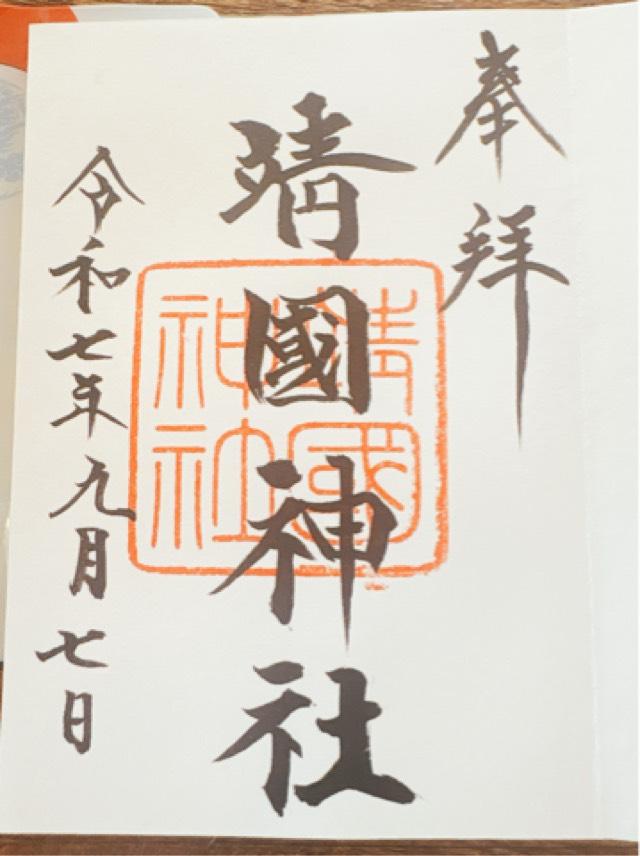 奉拜
靖國神社
靖國神社
令和七年九月七日